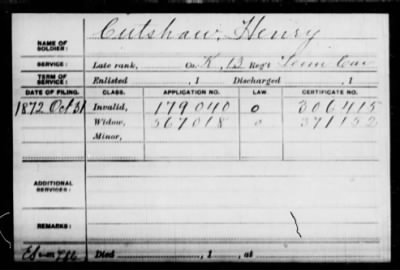 Cutshaw, Henry
NAME OF SOLDIER:
SERVICE: Late rank, Co. K, 13 Reg't Tenn Cav
TERM OF SERVICE: Enlisted , 1 Discharged , 1
DATE OF FILING. CLASS. APPLICATION NO. LAW CERTIFICATE NO.
1872 Oct 31 Invalid, 179040 o 306415
Widow, 567018 o 371152
Minor,
ADDITIONAL SERVICES:
REMARKS:
Died , 1 , at